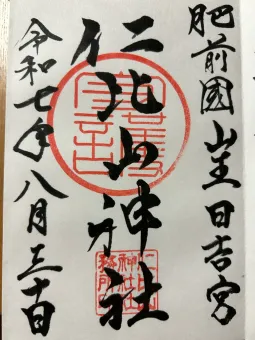 肥前國山王日吉宮
仁比山神社
令和七年八月三十日